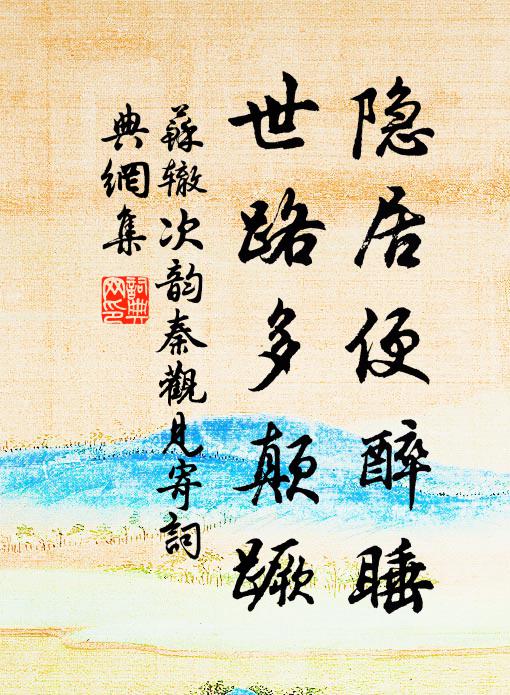 隐居便醉睡
世路多颠蹶
蘇辙次韵秦觀見寄詞
典網集
詞典网印